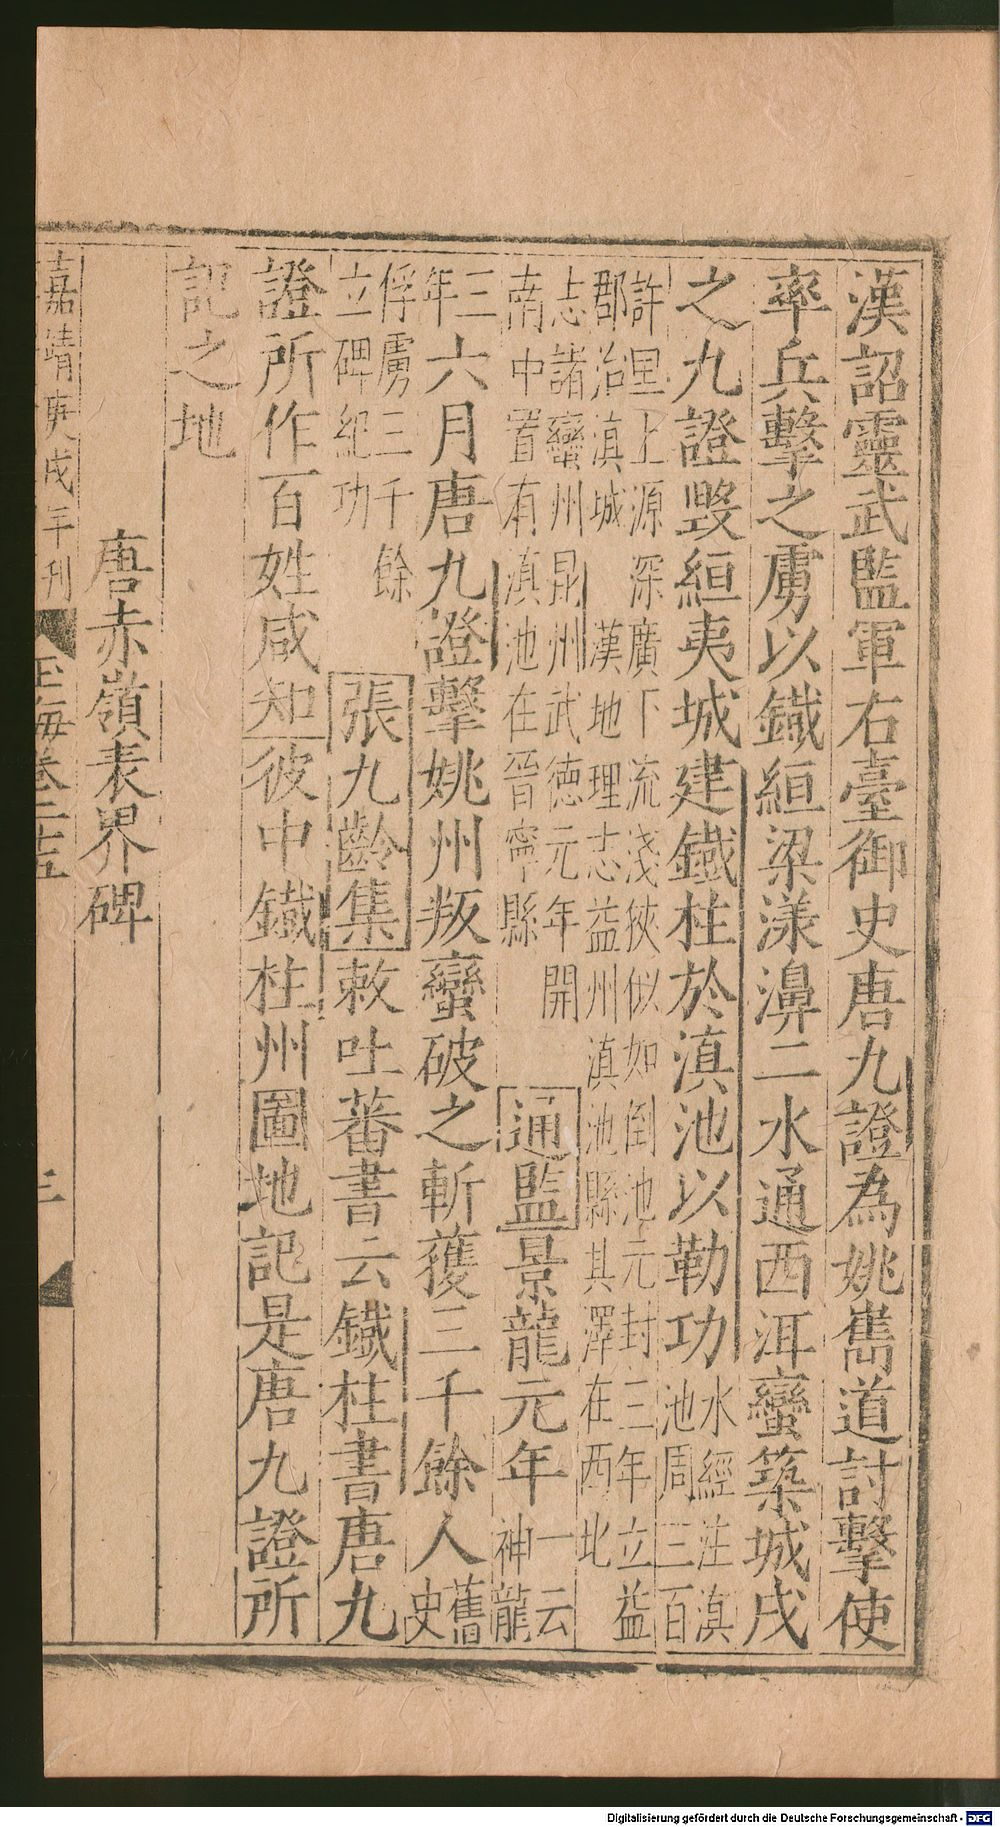 漢詔靈武監軍右臺御史唐九證為姚嶲道討擊使
率兵擊之虜以鐵絙梁漾濞二水通西洱蠻築城戍
之九證毀絙夷城建鐵柱於滇池以勒功水經注滇池周三百
許里上源深廣下流淺狹似如倒池元封三年立益郡治滇城漢地理志益州滇池縣其澤在西北
志諸蠻州昆州武德元年開南中置有滇池在晉寧縣通監景龍元年一云神龍
三年六月唐九證擊姚州叛蠻破之斬獲三千餘人舊史
俘虜三千餘立碑紀功張九齡集敕吐蕃書云鐵柱書唐九
證所作百姓咸知彼中鐵柱州圖地記是唐九證所
記之地
唐赤嶺表界碑
嘉靖庚戌年刊 玉海卷二十五 三
Digitalisierung gefördert durch die Deutsche Forschungsgemeinschaft - DFG